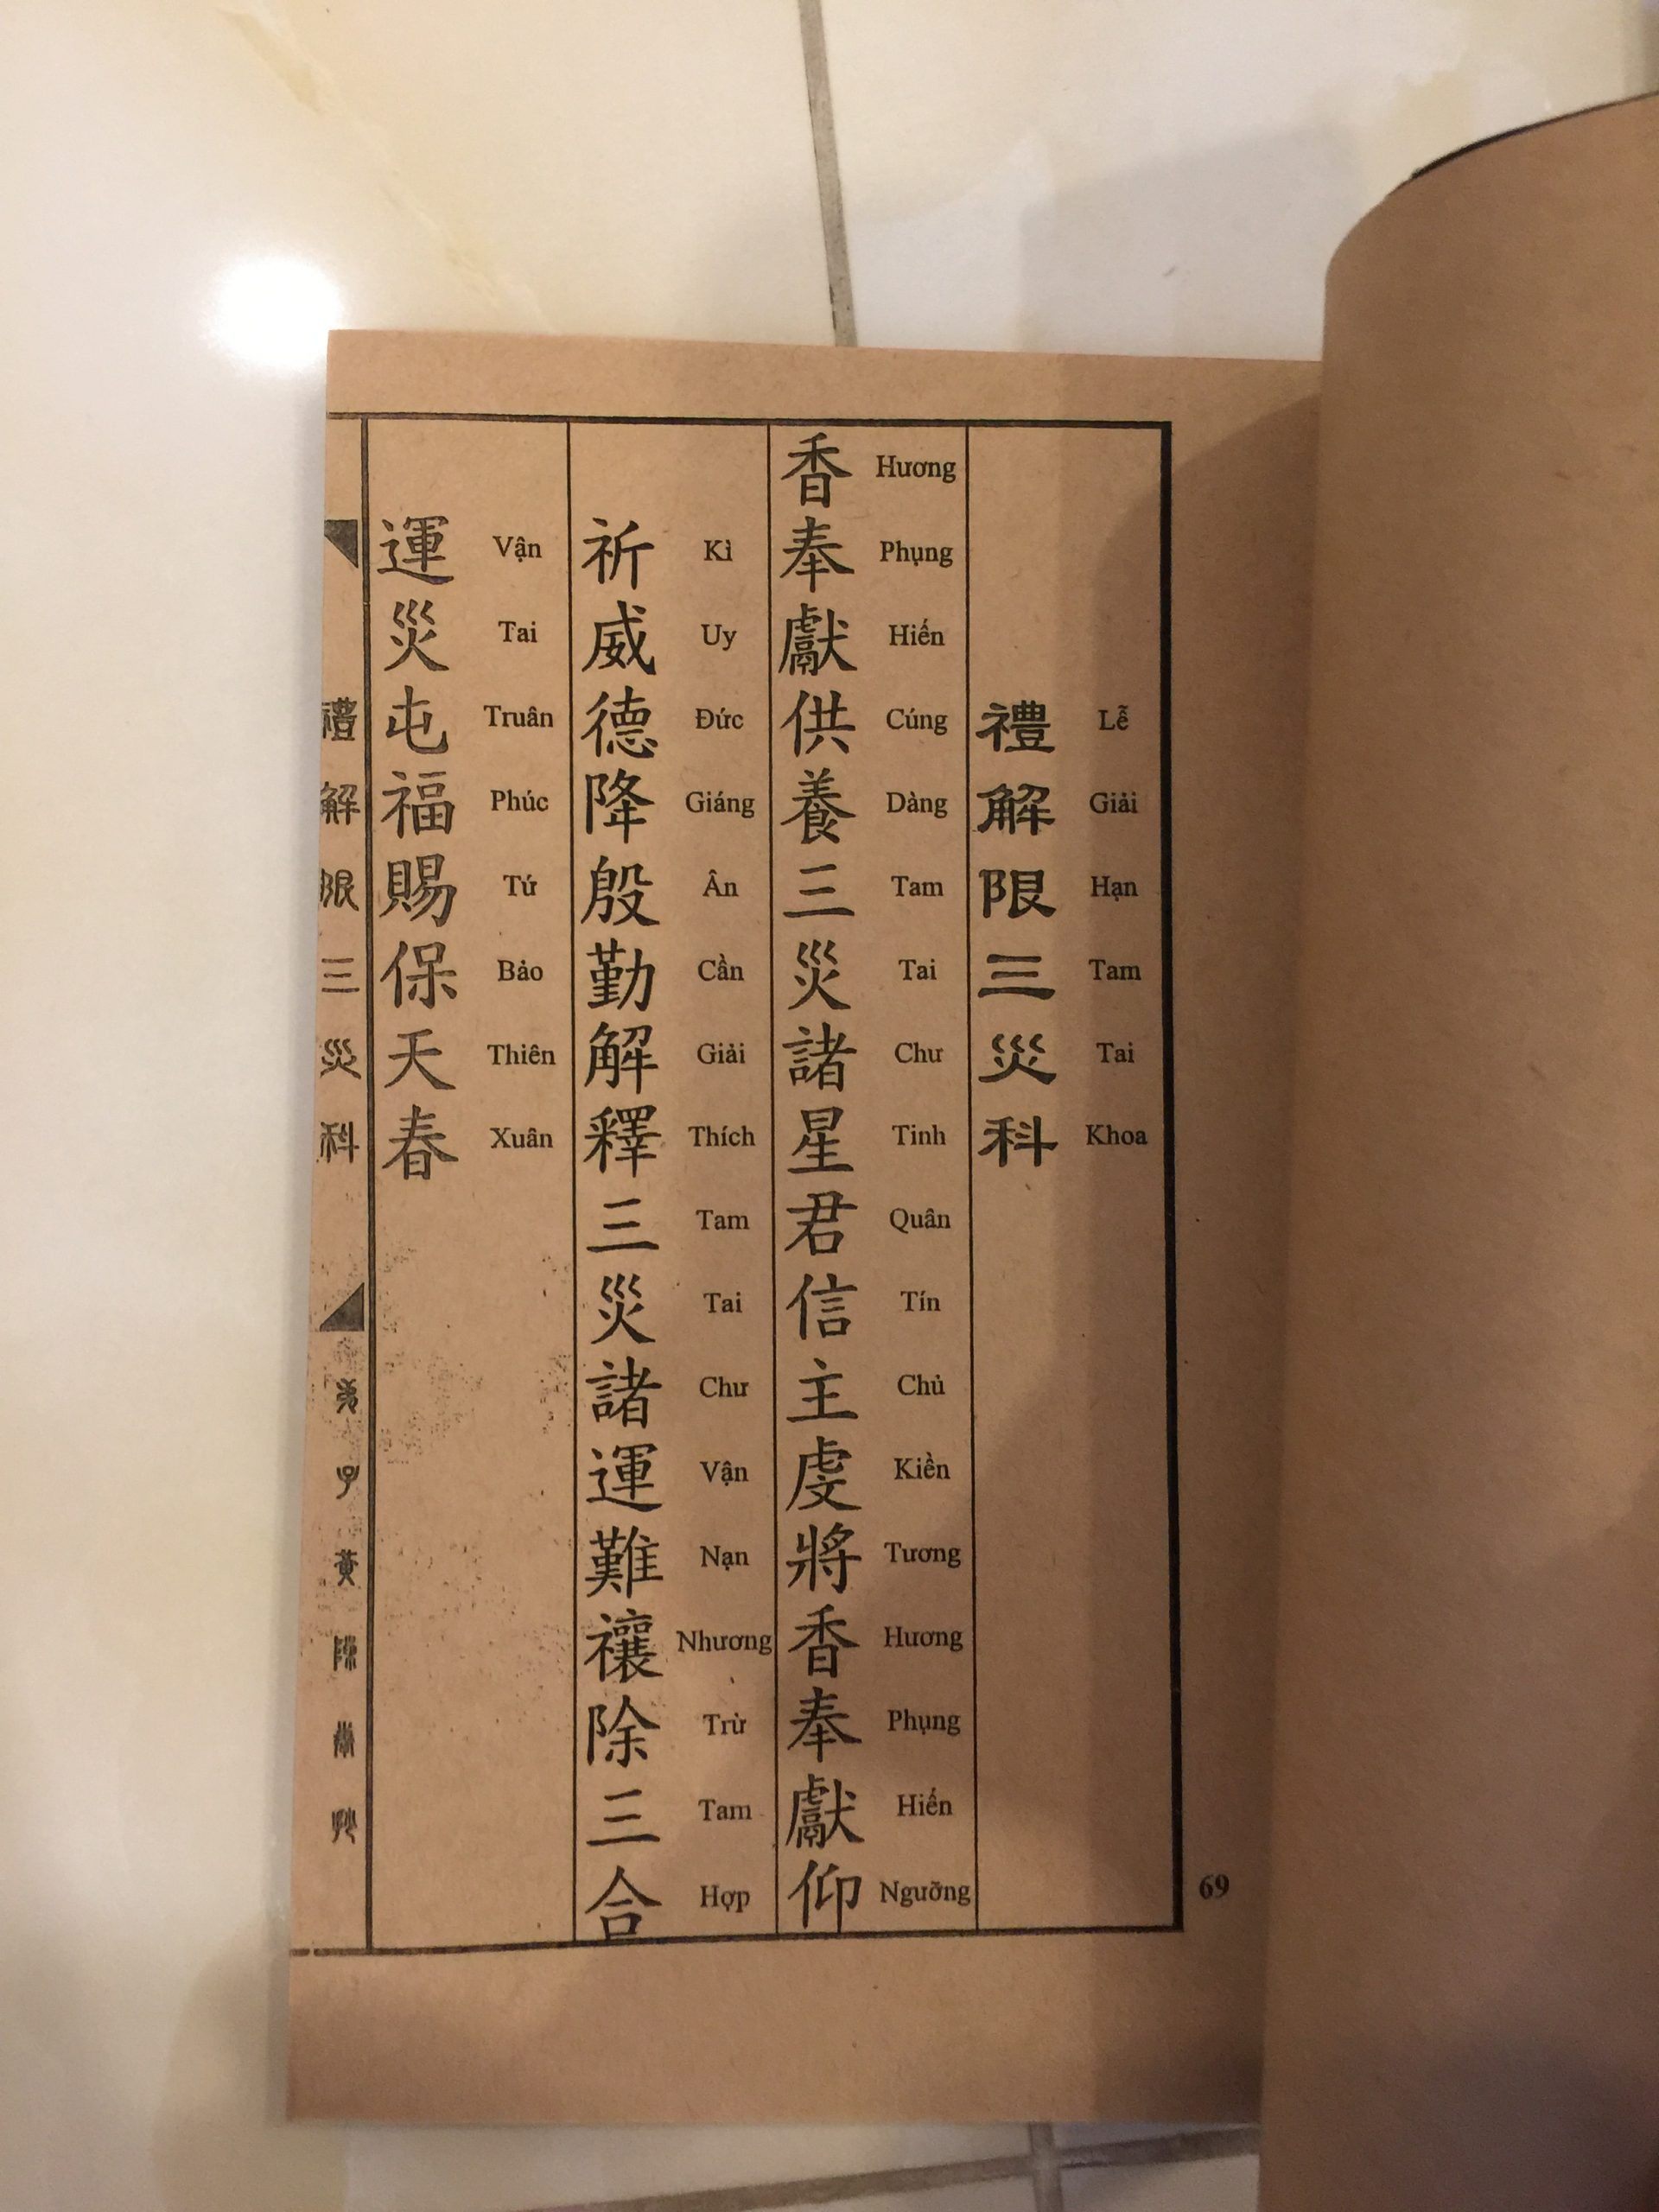 禮解限三災科
Lễ Giải Hạn Tam Tai Khoa
香奉獻供養三災諸星君信主虔將香奉獻仰
Hương Phụng Hiến Cúng Dàng Tam Tai Chư Tinh Quân Tín Chủ Kiền Tương Hương Phụng Hiến Ngưỡng
祈威德降殷勤解釋三災諸運難禳除三合
Kì Uy Đức Giáng Ân Cần Giải Thích Tam Tai Chư Vận Nạn Nhương Trừ Tam Hợp
運災屯福賜保天春
Vận Tai Truân Phúc Tứ Bảo Thiên Xuân
禮解限三災科
子黃
69